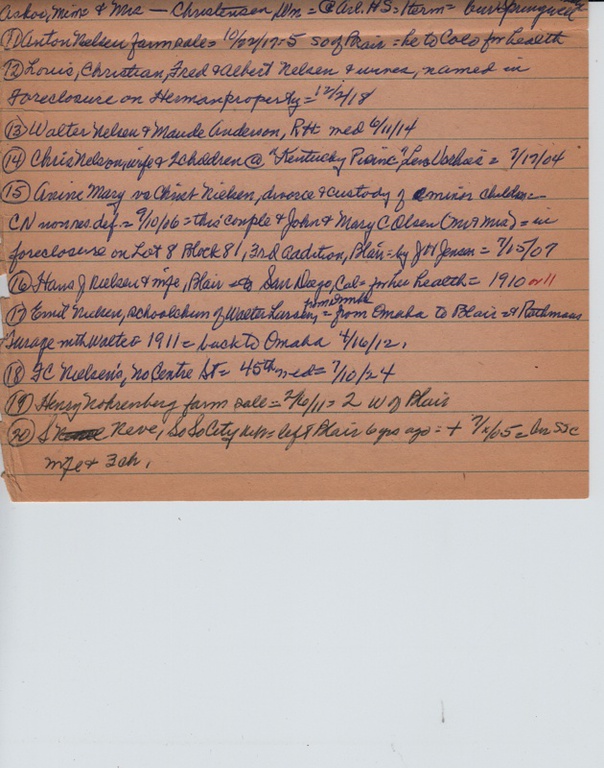 Askov, Minn & Mrs — Christensen, Wm = @ Arl. H.S. = 1 term =
11) Anton Nielsen farm sale = 10/22/17 = 5 so of Blair = he to Colo for health
12) Louis, Christian, Fred & Albert Nelsen & wives, named in
foreclosure on Herman property = 12/2/18
13) Walter Nelsen & Maude Anderson, RH med 6/11/14
14) Chris Nelson, wife & 2 children @ "Kentucky Picnic", = 7/17/04
15) Anine Mary vs Christ Nielsen, divorce & custody of minor children =
CN nonres. def. = 9/10/06 = this couple & John & Mary C Olsen (Mr & Mrs) = in
foreclosure on Lot 8 Block 81, 3rd Addition, Blair = by J H Jensen = 7/15/07
16) Hans J Nielsen & wife, Blair to San Diego, Cal = for her health = 1910 or 11
17) Emil Nielsen, schoolchum of Walter Larsen, = from Omaha to Blair = @
Garage with Walter 1911 = back to Omaha 4/16/12,
18) FC Nielsen's, No Centre St = 45th med = 7/10/24
19) Henry Nohrenberg farm sale = 2/10/11 = 2 W of Blair
20) S Neve, So So City = left Blair 6 yrs ago = + =
wife & 3 ch,